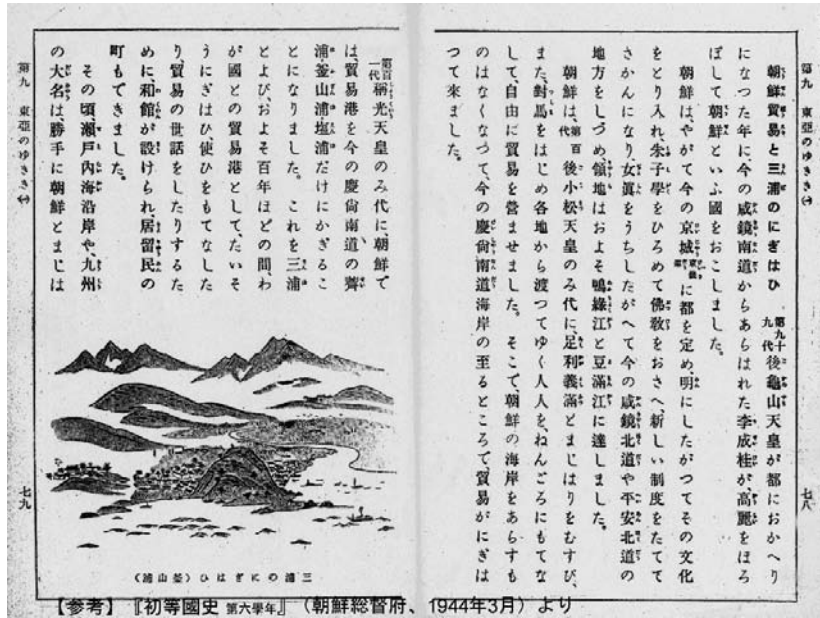 第九　東亞のゆきき(一)
七八
朝鮮貿易と三浦のにぎはひ　第九十九代後龜山天皇が都におかへり
になつた年に、今の咸鏡南道からあらはれた李成桂が、高麗をほろ
ぼして朝鮮といふ國をおこしました。
朝鮮は、やがて今の京城に都を定め、明にしたがつてその文化
をとり入れ、朱子學をひろめて佛敎をおさへ、新しい制度をたてて
さかんになり、女眞をうちしたがへて今の咸鏡北道や平安北道の
地方をしづめ、領地はおよそ鴨綠江と豆滿江に達しました。
朝鮮は、第百代後小松天皇のみ代に、足利義滿とまじはりをむすび、
また、對馬をはじめ各地から渡つてゆく人人を、ねんごろにもてな
して、自由に貿易を營ませました。そこで、朝鮮の海岸をあらすも
のはなくなつて、今の慶尙南道海岸の至るところで貿易がにぎは
つて來ました。
第百一代稱光天皇のみ代に、朝鮮で
は、貿易港を今の慶尙南道の薺
浦、釜山浦、塩浦だけにかぎるこ
とになりました。これを三浦
とよび、およそ百年ほどの間、わ
が國との貿易港として、たいそ
うにぎはひ、使ひをもてなした
り、貿易の世話をしたりするた
めに、和館が設けられ、居留民の
町もできました。
その頃、瀨戶內海沿岸や、九州
の大名は勝手に朝鮮とまじは
三浦のにぎはひ(釜山浦)
第九　東亞のゆきき(一)
七九
【参考】『初等國史 第六學年』（朝鮮総督府、1944年3月）より